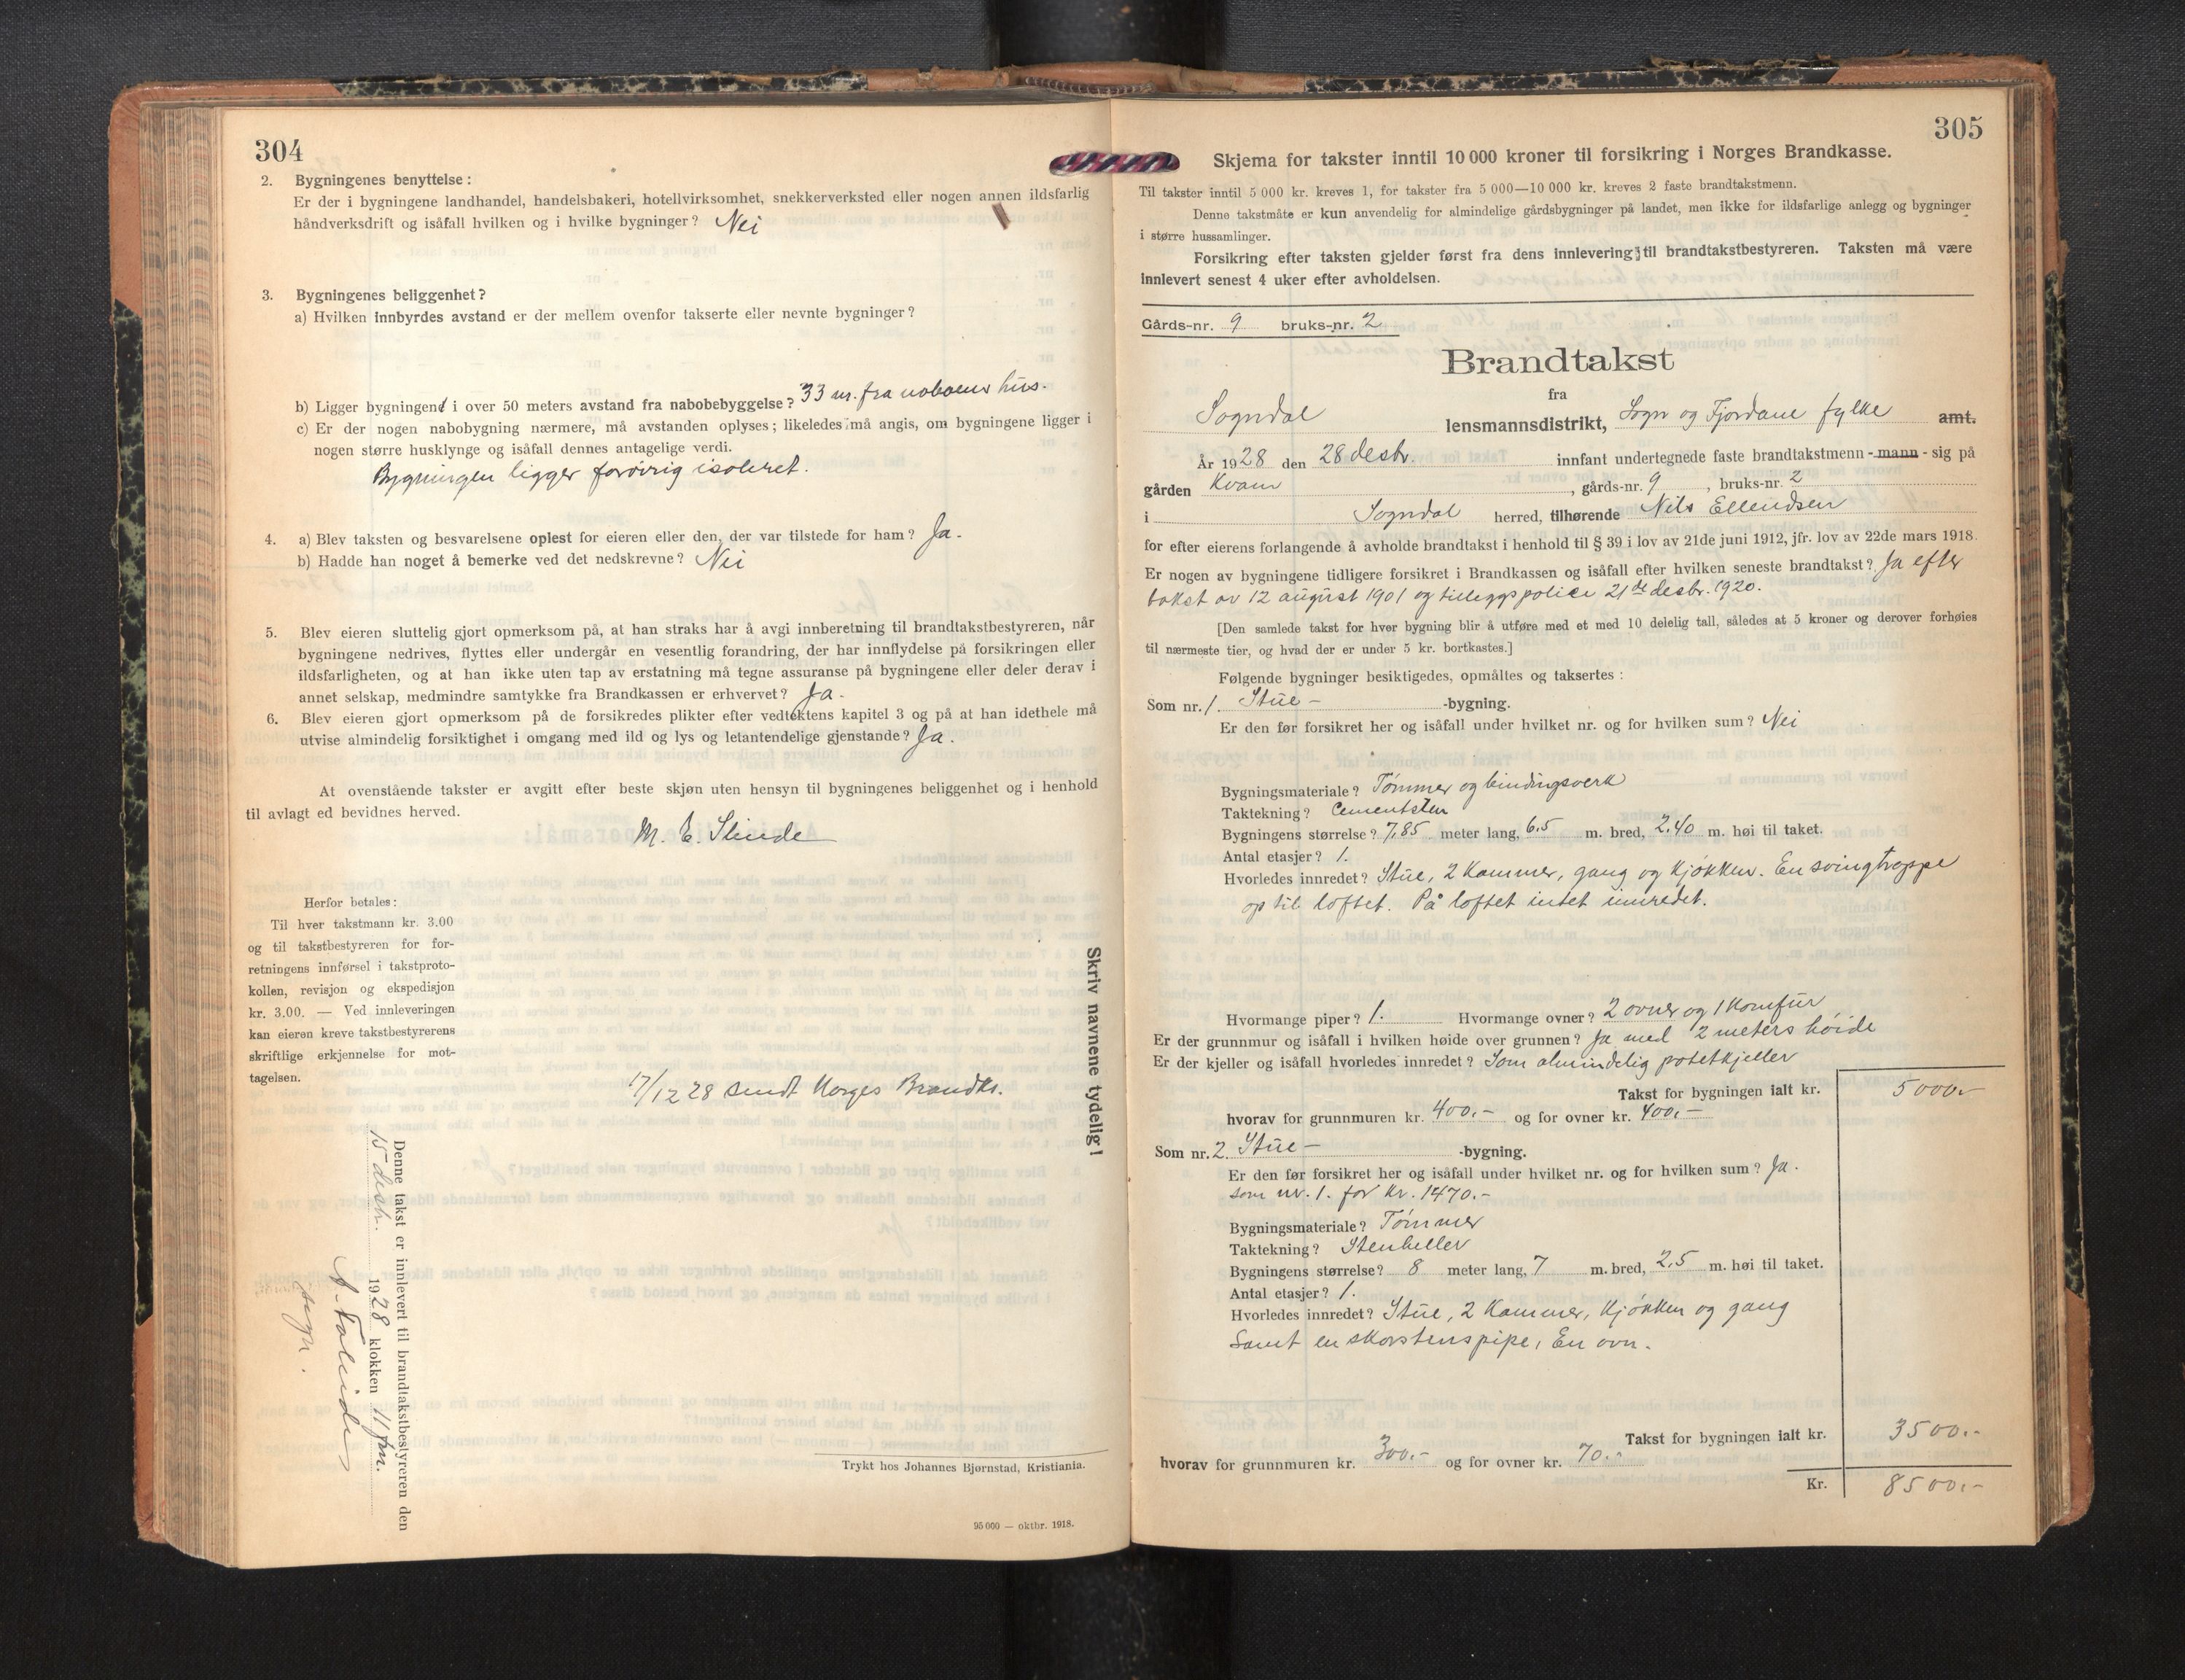 304
2. Bygningenes benyttelse:
Er der i bygningene landhandel, handelsbakeri, hotellvirksomhet, snekkerverksted eller nogen annen ildsfarlig
håndverksdrift og isåfall hvilken og i hvilke bygninger? Nei
3. Bygningenes beliggenhet?
a) Hvilken innbyrdes avstand er der mellem ovenfor takserte eller nevnte bygninger?
b) Ligger bygningene i over 50 meters avstand fra nabobebyggelse? 33 m. fra naboens hus.
c) Er der nogen nabobygning nærmere, må avstanden oplyses; likeledes må angis, om bygningene ligger i
nogen større husklynge og isåfall dennes antagelige verdi.
Bygningen ligger forøvrig isoleret.
4. a) Blev taksten og besvarelsene oplest for eieren eller den, der var tilstede for ham? Ja.
b) Hadde han noget å bemerke ved det nedskrevne? Nei
5. Blev eieren sluttelig gjort opmerksom på, at han straks har å avgi innberetning til brandtakstbestyreren, når
bygningene nedrives, flyttes eller undergår en vesentlig forandring, der har innflydelse på forsikringen eller
ildsfarligheten, og at han ikke uten tap av erstatning må tegne assuranse på bygningene eller deler derav i
annet selskap, medmindre samtykke fra Brandkassen er erhvervet? Ja.
6. Blev eieren gjort opmerksom på de forsikredes plikter efter vedtektens kapitel 3 og på at han idethele må
utvise almindelig forsiktighet i omgang med ild og lys og letantendelige gjenstande? Ja.
At ovenstående takster er avgitt efter beste skjøn uten hensyn til bygningenes beliggenhet og i henhold
til avlagt ed bevidnes herved.
M. E. Slinde
Herfor betales:
Til hver takstmann kr. 3.00
og til takstbestyreren for for-
retningens innførsel i takstproto-
kollen, revisjon og ekspedisjon
kr. 3.00. — Ved innleveringen
kan eieren kreve takstbestyrerens
skriftlige erkjennelse for mot-
tagelsen.
17/12 28 sendt Norges Brandks.
Skriv navnene tydelig!
Denne takst er innlevert til brandtakstbestyreren den
15 desbr. 1928 klokken 11 fm.
Trykt hos Johannes Bjørnstad, Kristiania.
95 000 — oktbr. 1918.
305
Skjema for takster inntil 10 000 kroner til forsikring i Norges Brandkasse.
Til takster inntil 5 000 kr. kreves 1, for takster fra 5 000—10 000 kr. kreves 2 faste brandtakstmenn.
Denne takstmåte er kun anvendelig for almindelige gårdsbygninger på landet, men ikke for ildsfarlige anlegg og bygninger
i større hussamlinger.
Forsikring efter taksten gjelder først fra dens innlevering til brandtakstbestyreren. Taksten må være
innlevert senest 4 uker efter avholdelsen.
Gårds-nr. 9 bruks-nr. 2
Brandtakst
fra
Sogndal lensmannsdistrikt, Sogn og Fjordane fylke amt.
År 1928 den 28 desbr. innfant undertegnede faste brandtakstmenn - mann - sig på
gården Kvam, gårds-nr. 9, bruks-nr. 2
i Sogndal herred, tilhørende Nils Ellendsen
for efter eierens forlangende å avholde brandtakst i henhold til § 39 i lov av 21de juni 1912, jfr. lov av 22de mars 1918.
Er nogen av bygningene tidligere forsikret i Brandkassen og isåfall efter hvilken seneste brandtakst? Ja efter
takst av 12 august 1901 og tilleggspolice 21de desbr. 1920.
[Den samlede takst for hver bygning blir å utføre med et med 10 delelig tall, således at 5 kroner og derover forhøies
til nærmeste tier, og hvad der er under 5 kr. bortkastes.]
Følgende bygninger besiktigedes, opmåltes og taksertes:
Som nr. 1. Stue - -bygning.
Er den før forsikret her og isåfall under hvilket nr. og for hvilken sum? Nei
Bygningsmateriale? Tømmer og bindingsverk
Taktekning? Cementsten
Bygningens størrelse? 7,85 meter lang, 6.5 m. bred, 2.40 m. høi til taket.
Antal etasjer? 1.
Hvorledes innredet? Stue, 2 Kammer, gang og Kjøkken. En svingtrappe
op til loftet. På loftet intet innredet.
Hvormange piper? 1. Hvormange ovner? 2 ovner og 1 Komfur
Er der grunnmur og isåfall i hvilken høide over grunnen? Ja med 2 meters høide
Er der kjeller og isåfall hvorledes innredet? Som almindelig potetkjeller
Takst for bygningen ialt kr. 5000.-
hvorav for grunnmuren kr. 400,- og for ovner kr. 400,-
Som nr. 2. Stue - -bygning.
Er den før forsikret her og isåfall under hvilket nr. og for hvilken sum? Ja.
som nr. 1. for Kr. 1470.-
Bygningsmateriale? Tømmer
Taktekning? Stenheller
Bygningens størrelse? 8 meter lang, 7 m. bred, 2,5 m. høi til taket.
Antal etasjer? 1.
Hvorledes innredet? Stue, 2 Kammer, Kjøkken og gang
Samt en skorstenspipe, En ovn.
Takst for bygningen ialt kr. 3500.-
hvorav for grunnmuren kr. 300.- og for ovner kr. 70.-
Kr. 8500.-